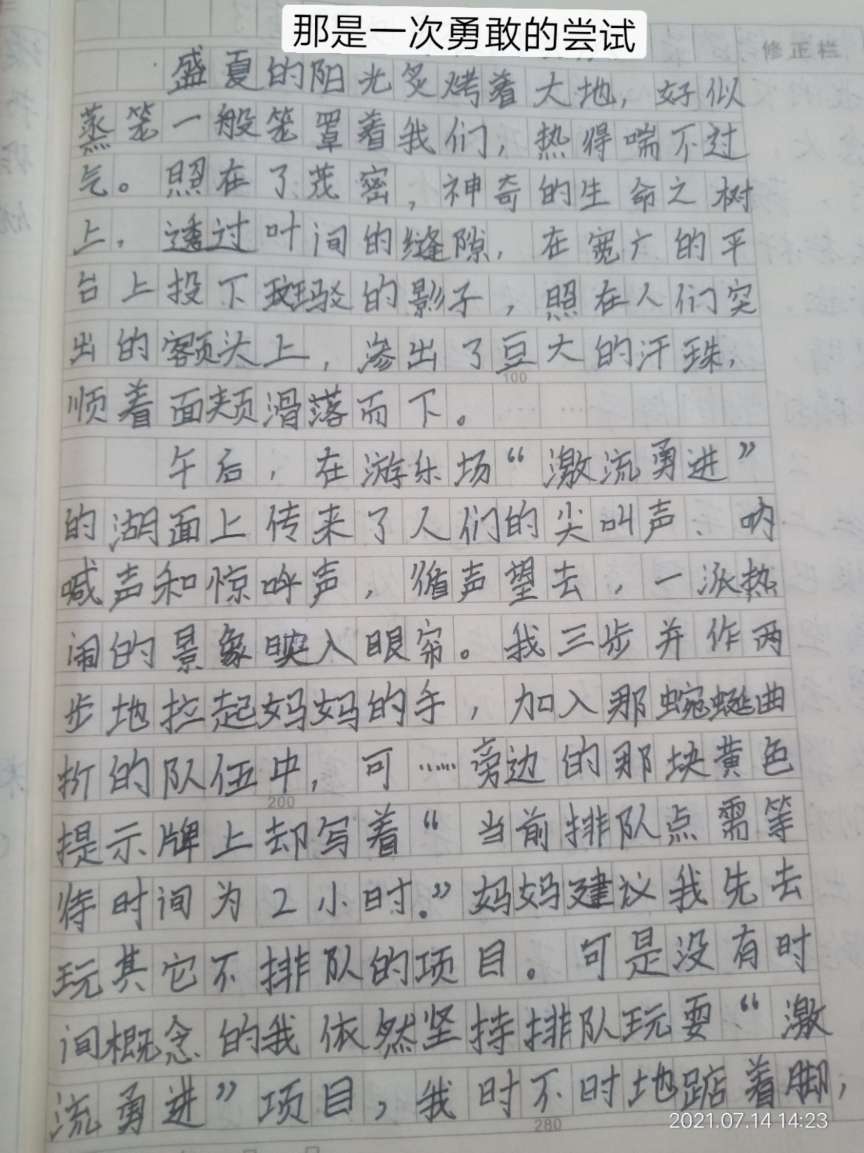 那是一次勇敢的尝试
修正栏
盛夏的阳光炙烤着大地，好似
蒸笼一般笼罩着我们，热得喘不过
气。照在了茂密，神奇的生命之树
上，透过叶间的缝隙，在宽广的平
台上投下斑驳的影子，照在人们突
出的额头上，渗出了豆大的汗珠，
100
顺着面颊滑落而下。
午后，在游乐场“激流勇进”
的湖面上传来了人们的尖叫声、呐
喊声和惊呼声，循声望去，一派热
闹的景象映入眼帘。我三步并作两
步地拉起妈妈的手，加入那蜿蜒曲
折的队伍中，可……旁边的那块黄色
200
提示牌上却写着“当前排队点需等
待时间为2小时。”妈妈建议我先去
玩其它不排队的项目。可是没有时
间概念的我依然坚持排队玩耍“激
流勇进”项目，我时不时地踮着脚，
280
2021.07.14 14:23